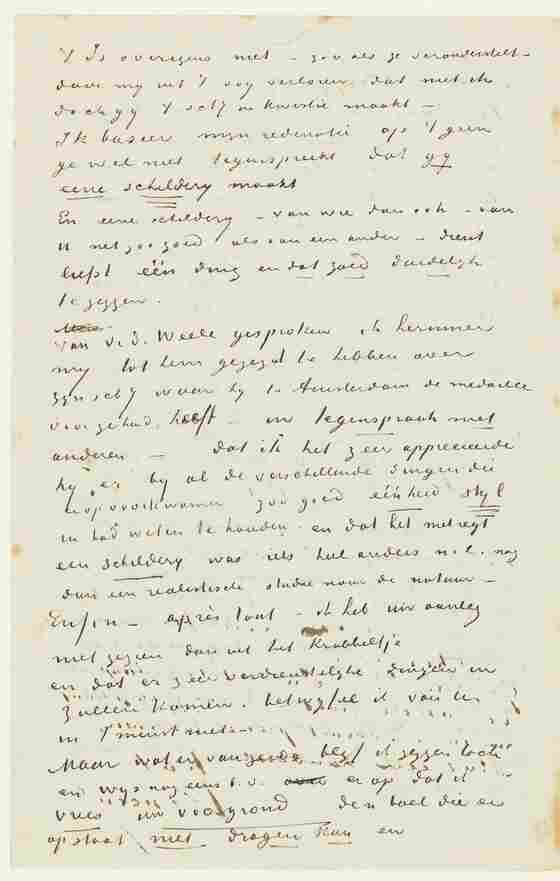 't Is overigens niet – zoo als ge veronderstelt –
door my uit 't oog verloren dat niet ik
doch gy 't schij in kwestie maakt –
Ik baseer mijn redenatie op 't geen
ge wel niet tegenspreekt dat gy
eene schildery maakt
En eene schildery – van wie dan ook – van
U net zoo goed als van een ander – dient
liefst één ding en dat goed duidelyk
te zeggen.
Van V.d. Weele gesproken ik herinner
my tot hem gezegd te hebben over
zyn schij waar hy te Amsterdam de medaille
voor gehad heeft – in tegenspraak met
anderen – dat ik het zeer apprecieerde
hy er by al de verschillende dingen die
erop voorkwamen zoo goed éénheid styl
in had weten te houden en dat het met regt
een schildery was iets heel anders n.l. nog
dan een realistische studie naar de natuur –
Enfin – après tout – ik heb uw aanleg
niet gezien dan uit het krabbeltje
en dat er zeer verdienstelyke dingen in
zullen komen. betwyfel ik voor u
in 't minst niet
Maar wat er van zy leg ik zeggen
en wys nog eens er op dat ik
vrees uw voorgrond den boel die er
op staat niet dragen kan en